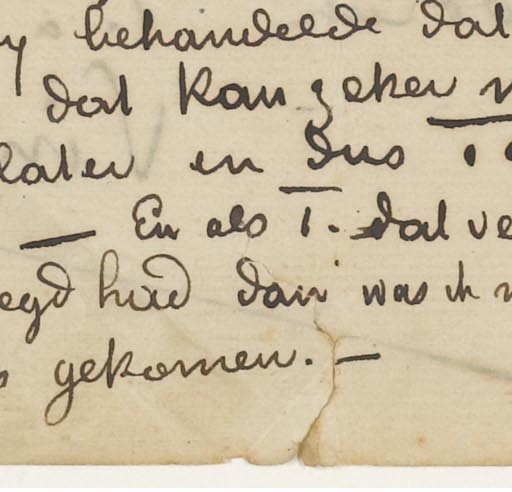 y behandelde dat
dat kan zeker
later en dus
— En als T. dat ve
egd had dan was ik
gekomen. —